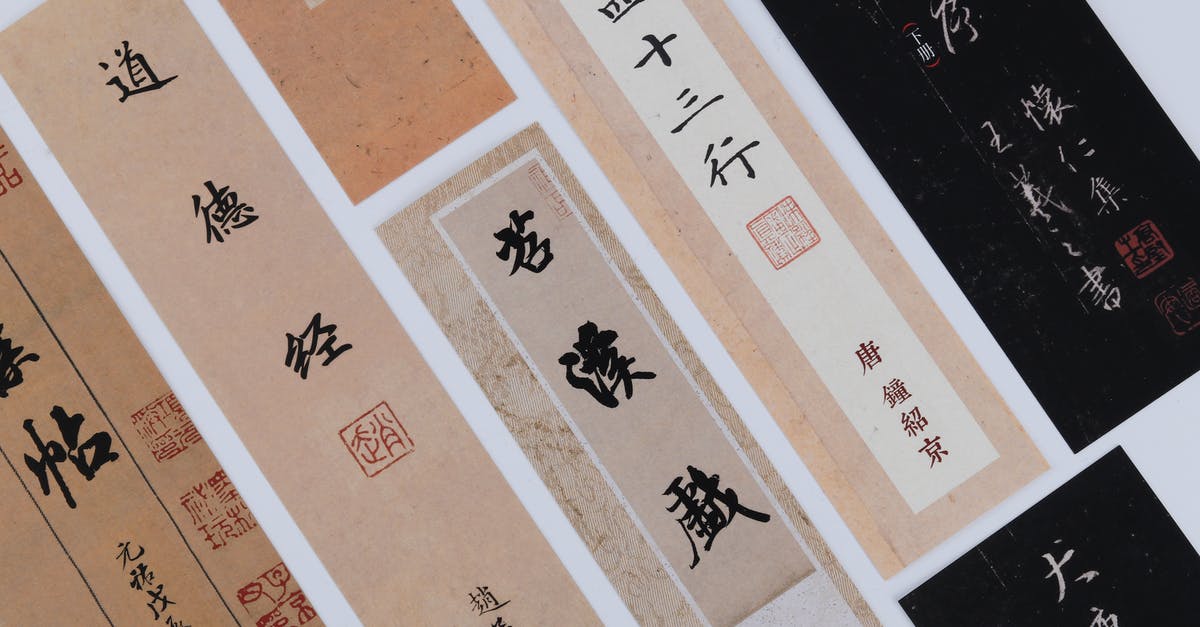 帖
元祐戊
道德经
趙
苕溪戲
四十三行
唐鐘紹京
序
(下册)
懷仁集
王羲之書
大唐